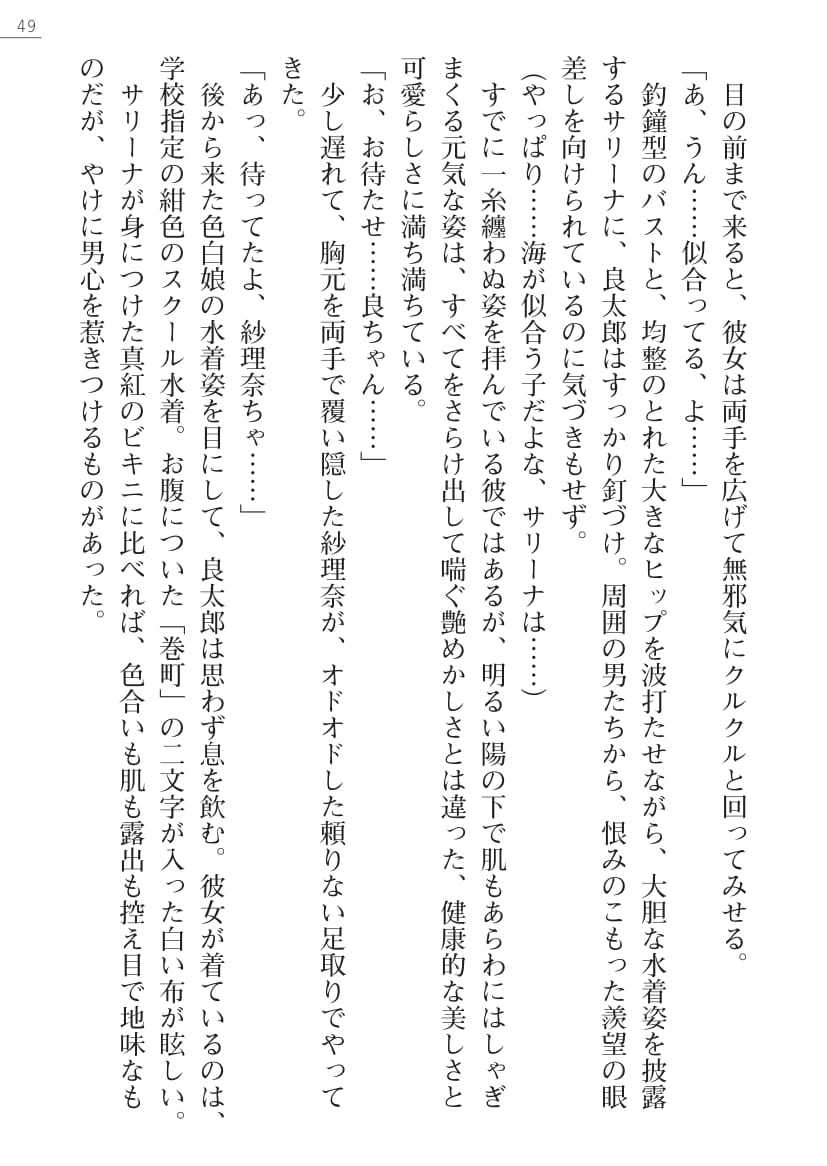 49
目の前まで来ると、彼女は両手を広げて無邪気にクルクルと回ってみせる。
「あ、うん……似合ってる、よ……」
釣鐘型のバストと、均整のとれた大きなヒップを波打たせながら、大胆な水着姿を披露
するサリーナに、良太郎はすっかり釘づけ。周囲の男たちから、恨みのこもった羨望の眼
差しを向けられているのに気づきもせず。
(やっぱり……海が似合う子だよな、サリーナは……)
すでに一糸纏わぬ姿を拝んでいる彼ではあるが、明るい陽の下で肌もあらわにはしゃぎ
まくる元気な姿は、すべてをさらけ出して喘ぐ艶めかしさとは違った、健康的な美しさと
可愛らしさに満ち満ちている。
「お、お待たせ……良ちゃん……」
少し遅れて、胸元を両手で覆い隠した紗理奈が、オドオドした頼りない足取りでやって
きた。
「あっ、待ってたよ、紗理奈ちゃ……」
後から来た色白娘の水着姿を目にして、良太郎は思わず息を飲む。彼女が着ているのは、
学校指定の紺色のスクール水着。お腹についた「巻町」の二文字が入った白い布が眩しい。
サリーナが身につけた真紅のビキニに比べれば、色合いも肌も露出も控え目で地味なも
のだが、やけに男心を惹きつけるものがあった。